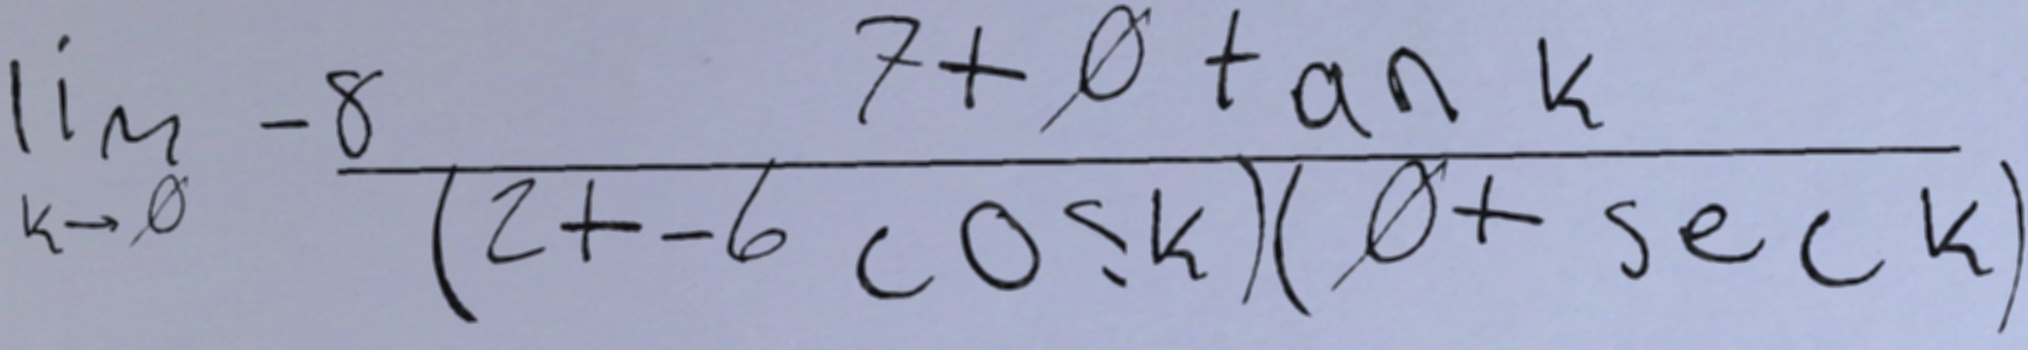 \lim_{k \to 0} -8 \frac{7 + 0 \tan k}{(2 + -6 \cos k)(0 + \sec k)}